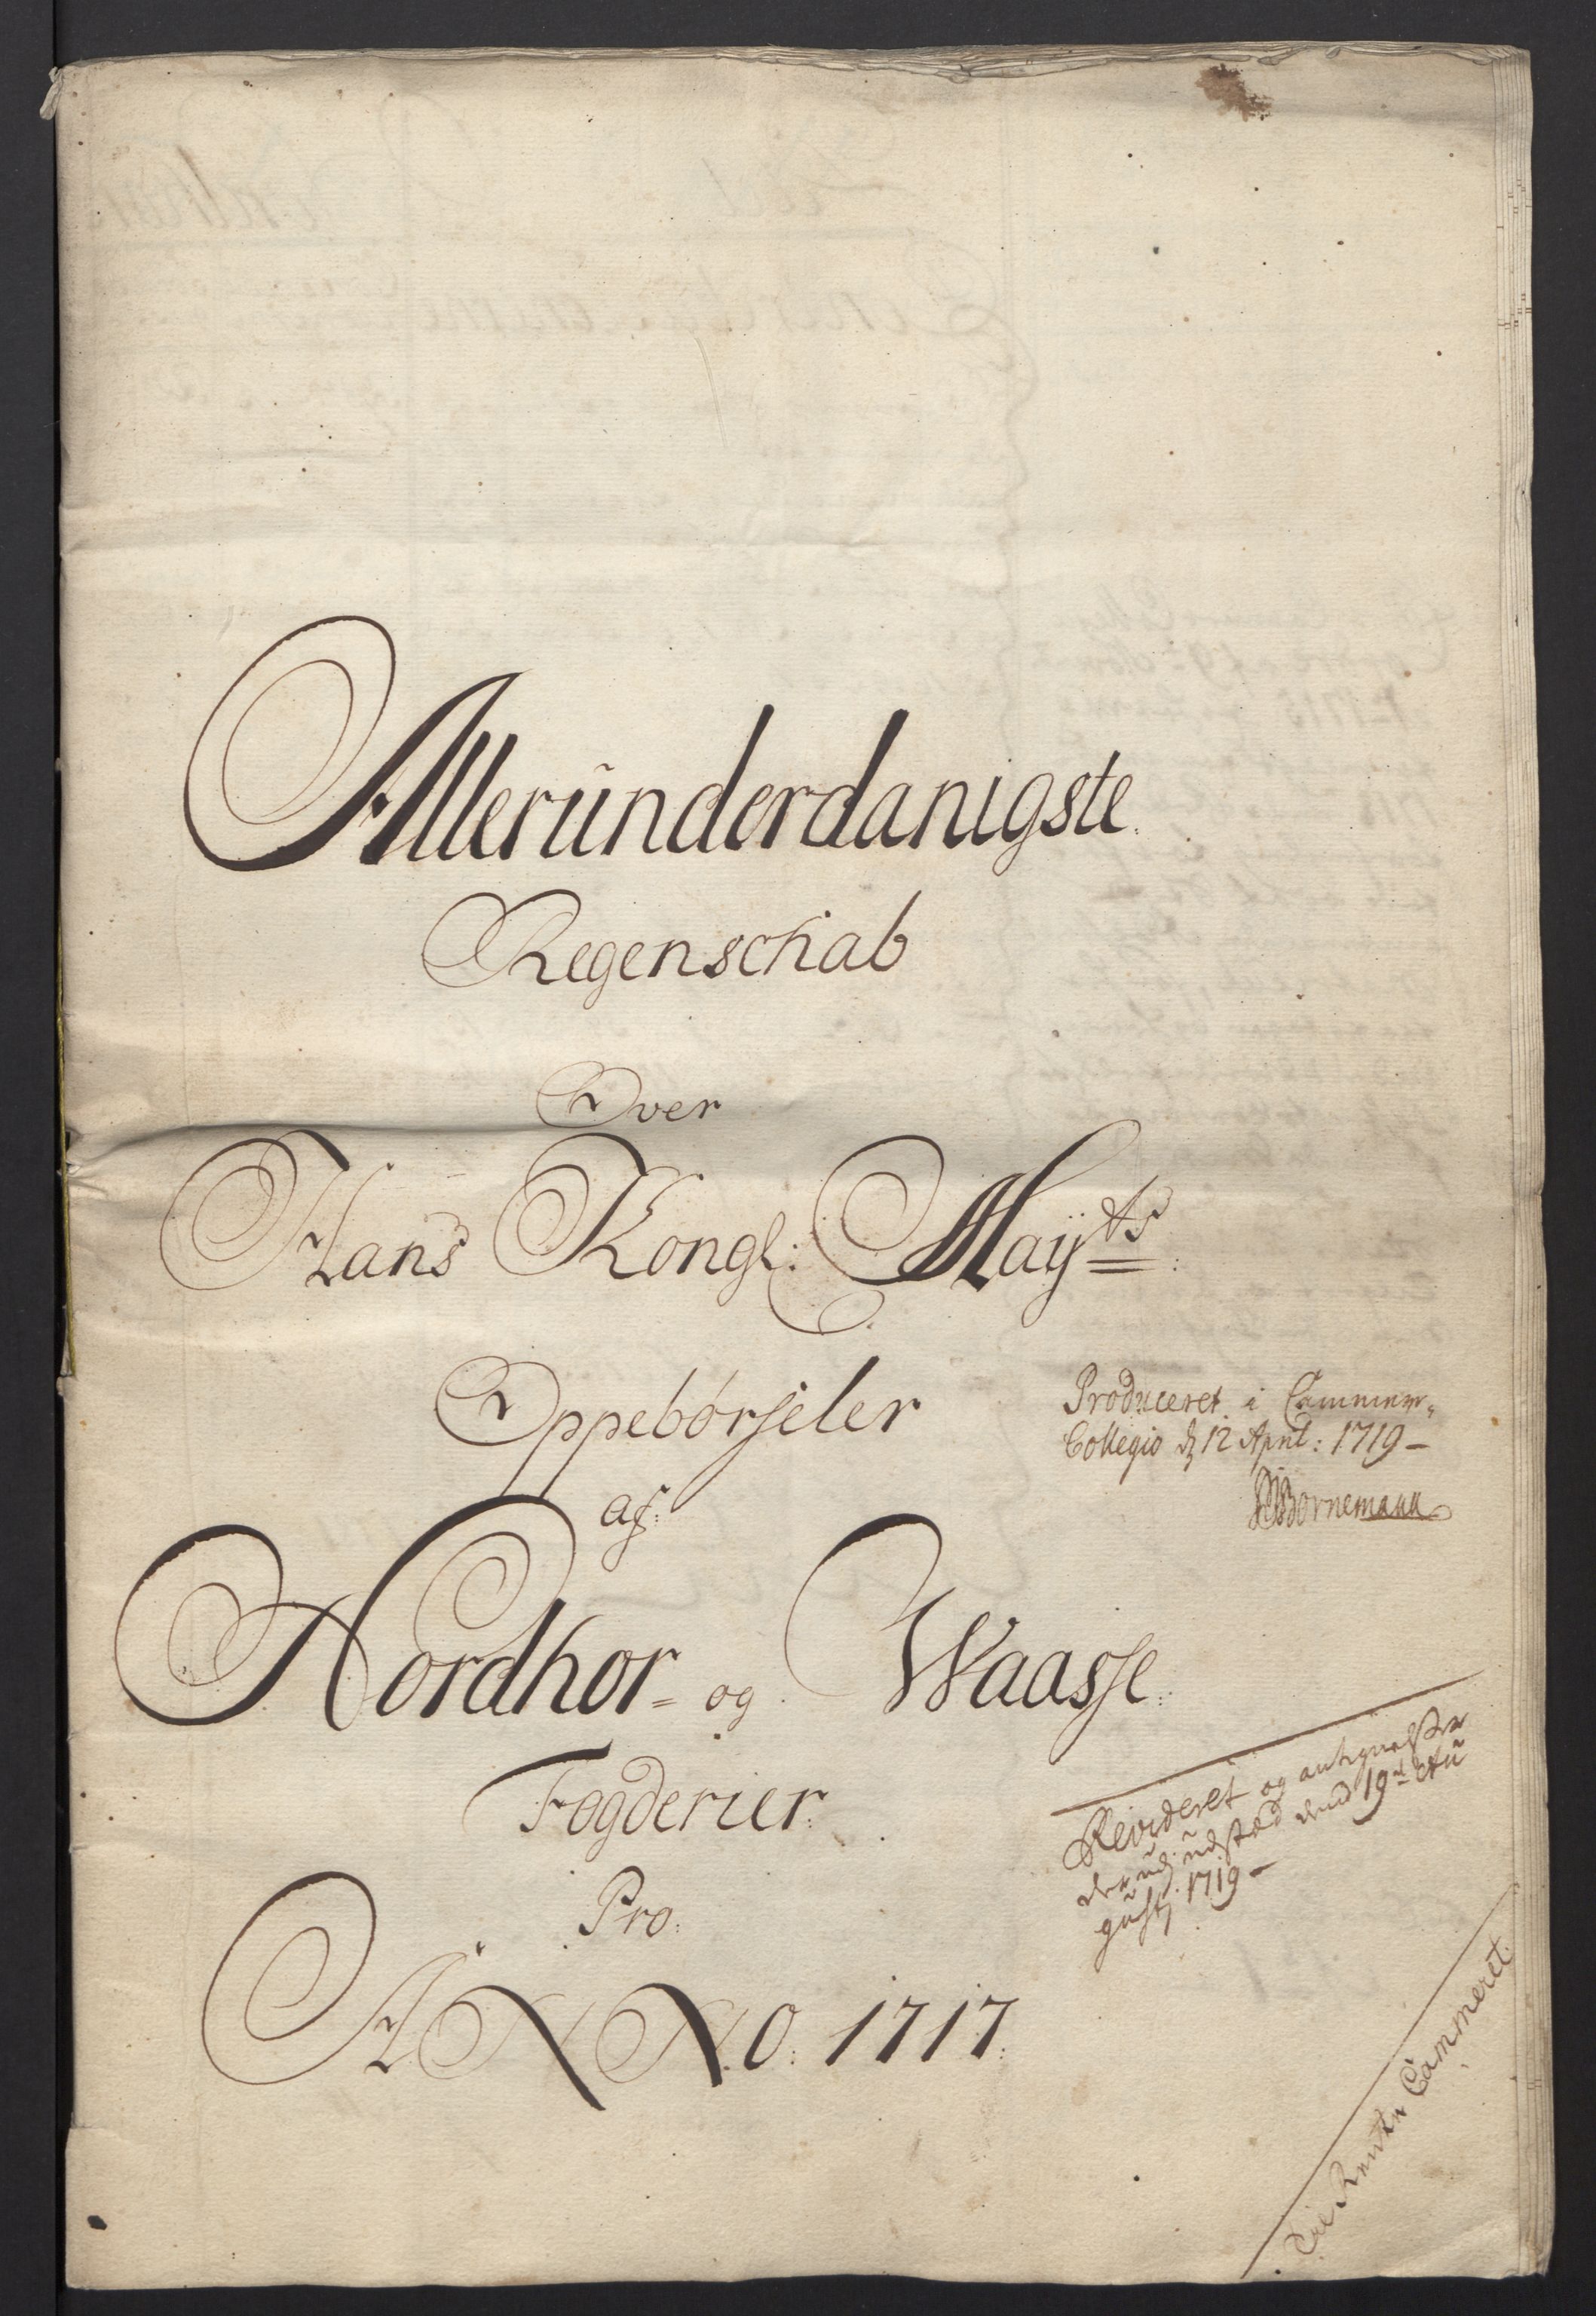 Alleründerdanigste
Regenschab
Over
Hans Kongl: Maÿ^ts
Oppebørseler
af
Nordhor= og Waasse
Fogderier
Pro
ANNO. 1717.
Produceret i Cammer,
Collegio d 12 April: 1719 –
Bornemann
Revideret og antegnelser
der üd udsted dend 19^d Aü
güstj 1719 –
Til Rente Cammeret.